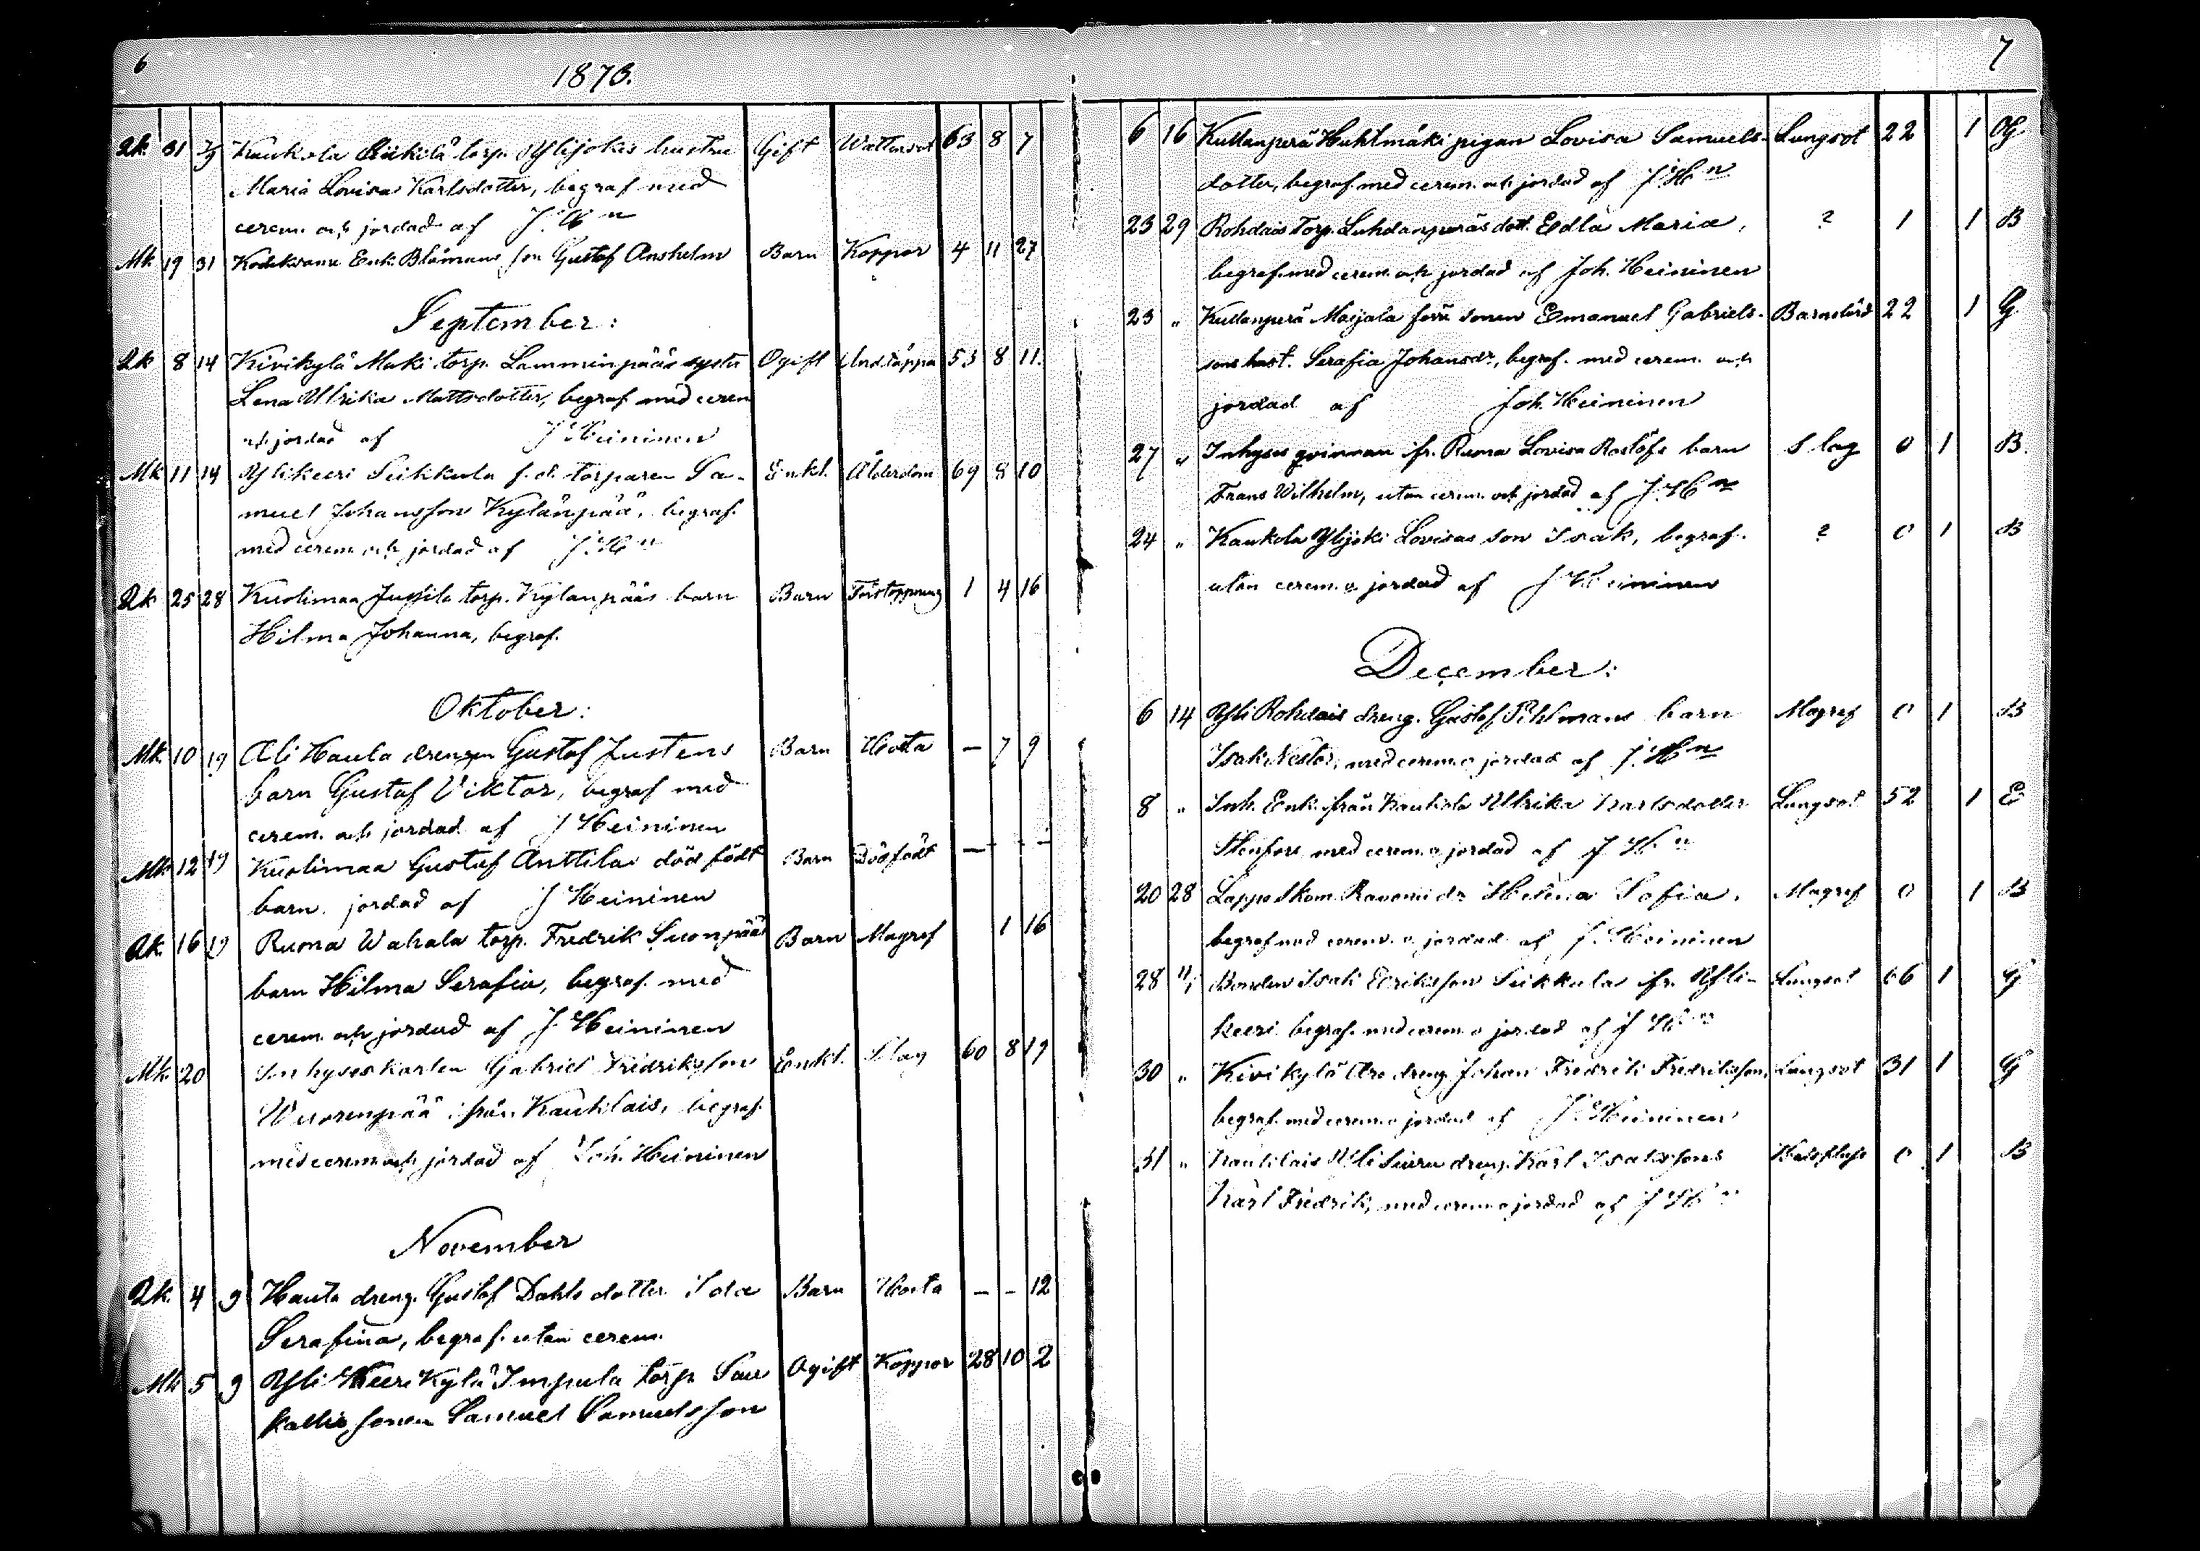 6
1873.
Qk. 31 7/9 Kaukola Eerikilä torp. Ylijokis hustru Gift Wattensot 63 8 7
Maria Lovisa Karlsdotter, begraf. med
cerem. och jordad af J. Hn
Mk 19 31 Enk. Blåmans son Gustaf Anshelm Barn Koppor 4 11 27
September:
Qk 8 14 Kivikylä Maki torp. Lamminpääs syster Ogift Andtäppa 53 8 11.
Lena Ulrika Mattsdotter, begraf. med cerem
och jordad af J Heininen
Mk 11 14 Ylikeeri Seikkula f. d. torparen Sa- Enkl. Ålderdom 69 8 10
muel Johansson Kylänpää, begraf.
med cerem. och jordad af J. Hn
Qk 25 28 Kuolimaa Jussila torp. Kylanpääs barn Barn Förstoppning 1 4 16
Hilma Johanna, begraf.
Oktober:
Mk 10 19 Ali Haula drengen Gustaf Justens Barn Hosta — 7 9
barn Gustaf Viktor, begraf med
cerem. och jordad af J Heininen
Mk 12 19 Kuolimaa Gustaf Anttilas död födt Barn Dödfödt — - -
barn. jordad af J Heininen
Qk. 16 19 Ruona Wahala torp. Fredrik Suonpääs Barn Magref 1 16
barn Hilma Serafia, begraf. med
cerem. och jordad af J. Heininen
Mk. 20 Inhyseskarlen Gabriel Fredriksson Enkl. Slag 60 8 19
Wuorenpää från Kauklais, begraf.
med cerem och jordad af Joh. Heininen
November
Qk. 4 9 Hauta dreng. Gustaf Dahls dotter Ida Barn Hosta — — 12
Serafina, begraf. utan cerem.
Mk 5 9 Yli Keeri Kylä Impula torp. Sau Ogift Koppor 28 10 2
kallio sonen Samuel Samuelsson
7
6 16 Kullanperä Huhtmäki pigan Lovisa Samuels- Lungsot 22 1 Og
dotter, begraf. med cerem. och jordad af J. Hn
23 29 Rohdais Torp. Luhdanperäs dott. Edla Maria, ? 1 1 B
begraf. med cerem. och jordad af Joh. Heininen
23 " Kullanperä Maijala sonen Emanuel Gabriels- Barnsbörd 22 1 G.
sons hust. Serafia Johansdr, begraf. med cerem. och
jordad af Joh. Heininen
27 " Inhyses qvinnan fr. Ruona Lovisa Roslöfs barn Slag 0 1 B.
Frans Wilhelm, utan cerem. och jordad af J. Hn
24 " Kaukola Ylijoki Lovisas son Isak, begraf. ? 0 1 B
utan cerem. o jordad af J Heininen
December:
6 14 Yli Rohdais dreng. Gustaf Pihlmans barn Magref 0 1 B
Isak Nestor, med cerem. o jordad af J. Hn
8 " Inh. Enk. från Kaukola Ulrika Karlsdotter Lungsot 52 1 E
Stenfors, med cerem. o jordad af J. Hn
20 28 Lappo Skom. Helena Sofia, Magref 0 1 B
begraf med cerem. o jordad af J. Heininen
28 Bonden Isak Eriksson Seikkula fr. Yli- Lungsot 66 1 G
keeri begraf. med cerem o jordad af J Hn
30 " Kivikylä Aro dreng Johan Fredrik Fredriksson, Lungsot 31 1 G
begraf. med cerem. o jordad af J. Heininen
31 " Kauklais Yli dreng. Karl Isakssons 0 1 B
Karl Fredrik, med cerem o jordad af J Hn